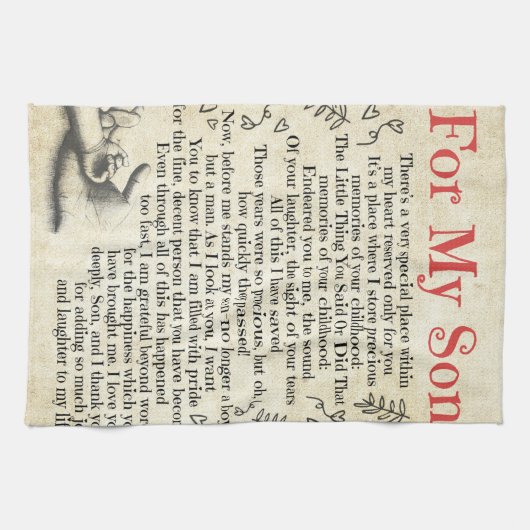 For My Son
There's a very special place within
my heart reserved only for you
It's a place where I store precious
memories of your childhood:
The Little Thing You Said Or Did That
memories of your childhood:
Endeared you to me, the sound
Of your laughter, the sight of your tears
All of this I have saved!
Those years were so precious, but oh,
how quickly they passed!
Now, before me stands my son no longer a boy
but a man. As I look at you, I want
You to know that I am filled with pride
for the fine, decent person that you have becom
Even through all of this has happened
too fast, I am grateful beyond wor
for the happiness which yo
have brought me. I love yo
deeply, Son, and I thank you
for adding so much jo
and laughter to my lif